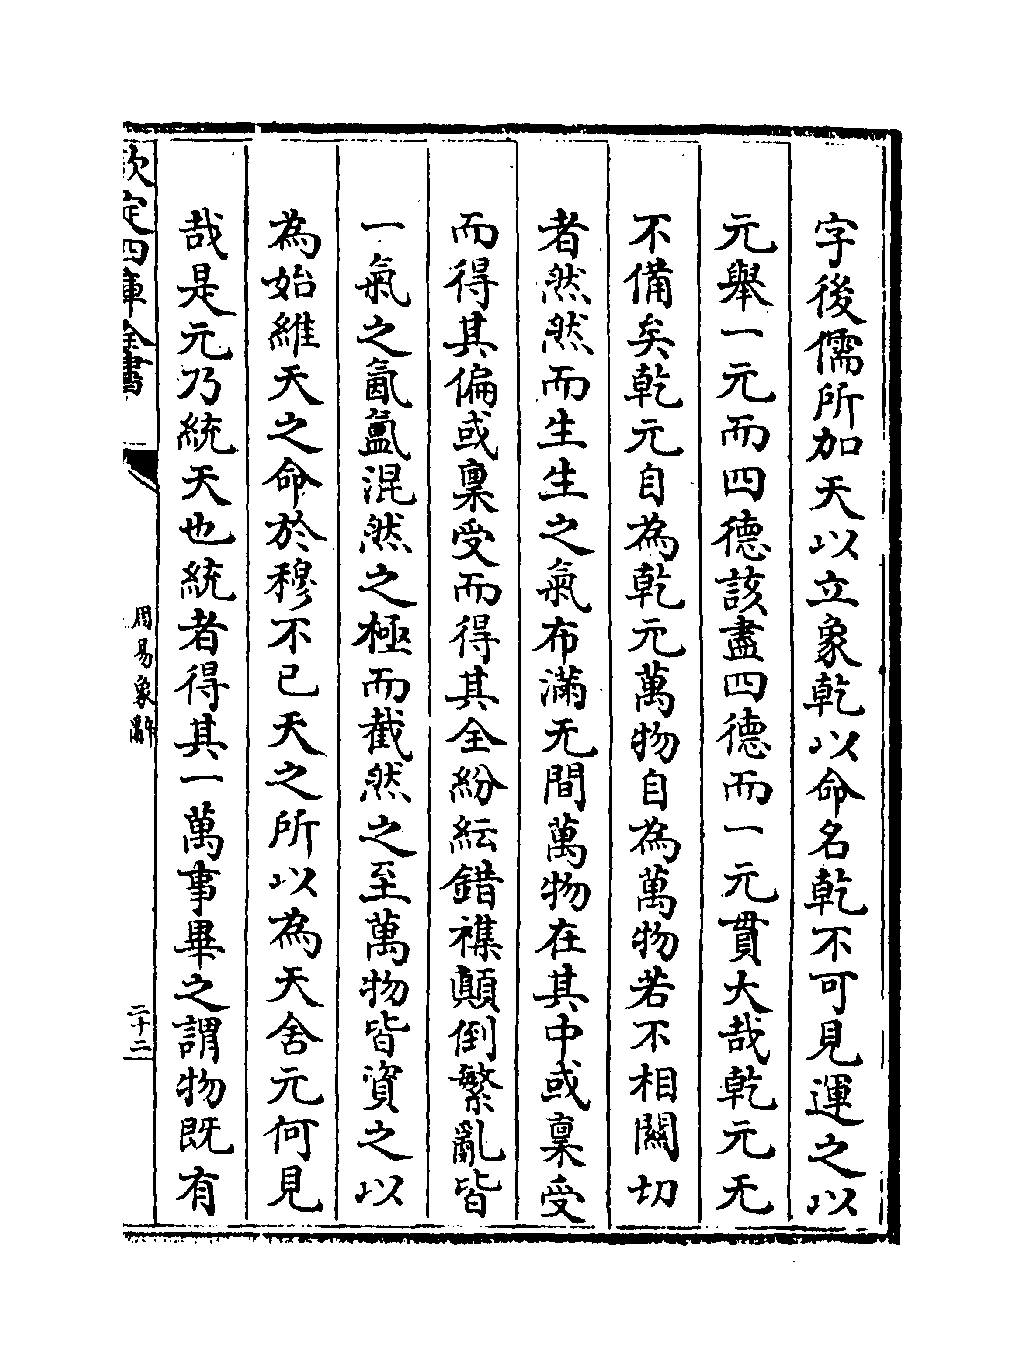 字後儒所加天以立象乾以命名乾不可見運之以
元舉一元而四德該盡四德而一元貫大哉乾元无
不備矣乾元自為乾元萬物自為萬物若不相關切
者然然而生生之氣布滿无間萬物在其中或稟受
而得其偏或稟受而得其全紛紜錯襍顛倒繁亂皆
一氣之氤氲混然之極而截然之至萬物皆資之以
為始維天之命於穆不已天之所以為天舍元何見
哉是元乃統天也統者得其一萬事畢之謂物既有
欽定四庫全書
周易象辭
二十二